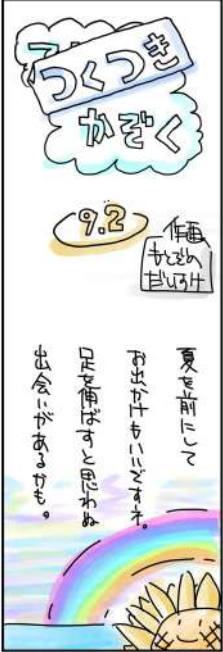 つくつき
かぞく
9.2
作画
もとぞの
だいすけ
夏を前にして
お出かけもいいですネ。
足を伸ばすと思わぬ
出会いがあるかも。